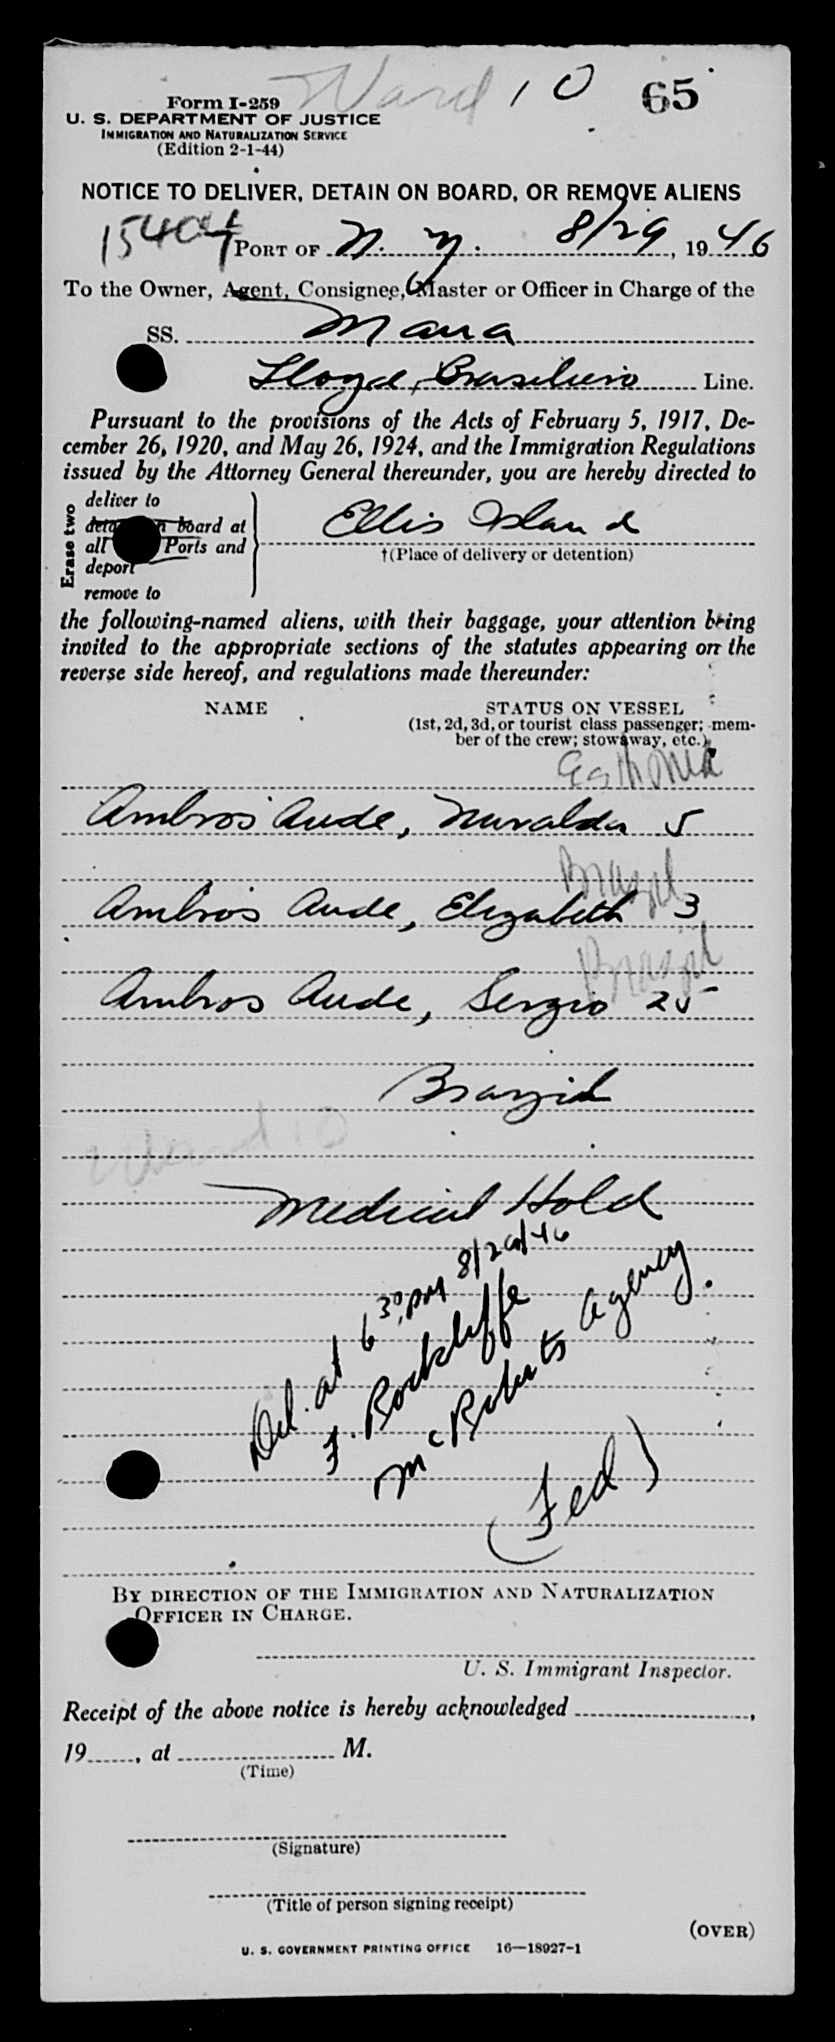 Ward 10 65
Form I-259
U. S. DEPARTMENT OF JUSTICE
IMMIGRATION AND NATURALIZATION SERVICE
(Edition 2-1-44)
NOTICE TO DELIVER, DETAIN ON BOARD, OR REMOVE ALIENS
15404
PORT OF N. Y. 8/29, 1946
To the Owner, Agent, Consignee, Master or Officer in Charge of the
SS. Maua
Lloyd Brasileiro Line.
Pursuant to the provisions of the Acts of February 5, 1917, De-
cember 26, 1920, and May 26, 1924, and the Immigration Regulations
issued by the Attorney General thereunder, you are hereby directed to
Erase two
deliver to
board at
all Ports and
deport
remove to
Ellis Island
†(Place of delivery or detention)
the following-named aliens, with their baggage, your attention being
invited to the appropriate sections of the statutes appearing on the
reverse side hereof, and regulations made thereunder:
NAME STATUS ON VESSEL
(1st, 2d, 3d, or tourist class passenger; mem-
ber of the crew; stowaway, etc.)
Esthonia
Ambros Aude, 5
Brazil
Ambros Aude, Elizabeth 3
Brazil
Ambros Aude, Sergio 25
Brazil
Ward 10
Medical Hold
Del. at 6 30 PM 8/29/46
F. Rockliffe
McRoberts Agency.
(Fed)
BY DIRECTION OF THE IMMIGRATION AND NATURALIZATION
OFFICER IN CHARGE.
U. S. Immigrant Inspector.
Receipt of the above notice is hereby acknowledged ,
19 , at M.
(Time)
(Signature)
(Title of person signing receipt)
(OVER)
U. S. GOVERNMENT PRINTING OFFICE 16—18927-1